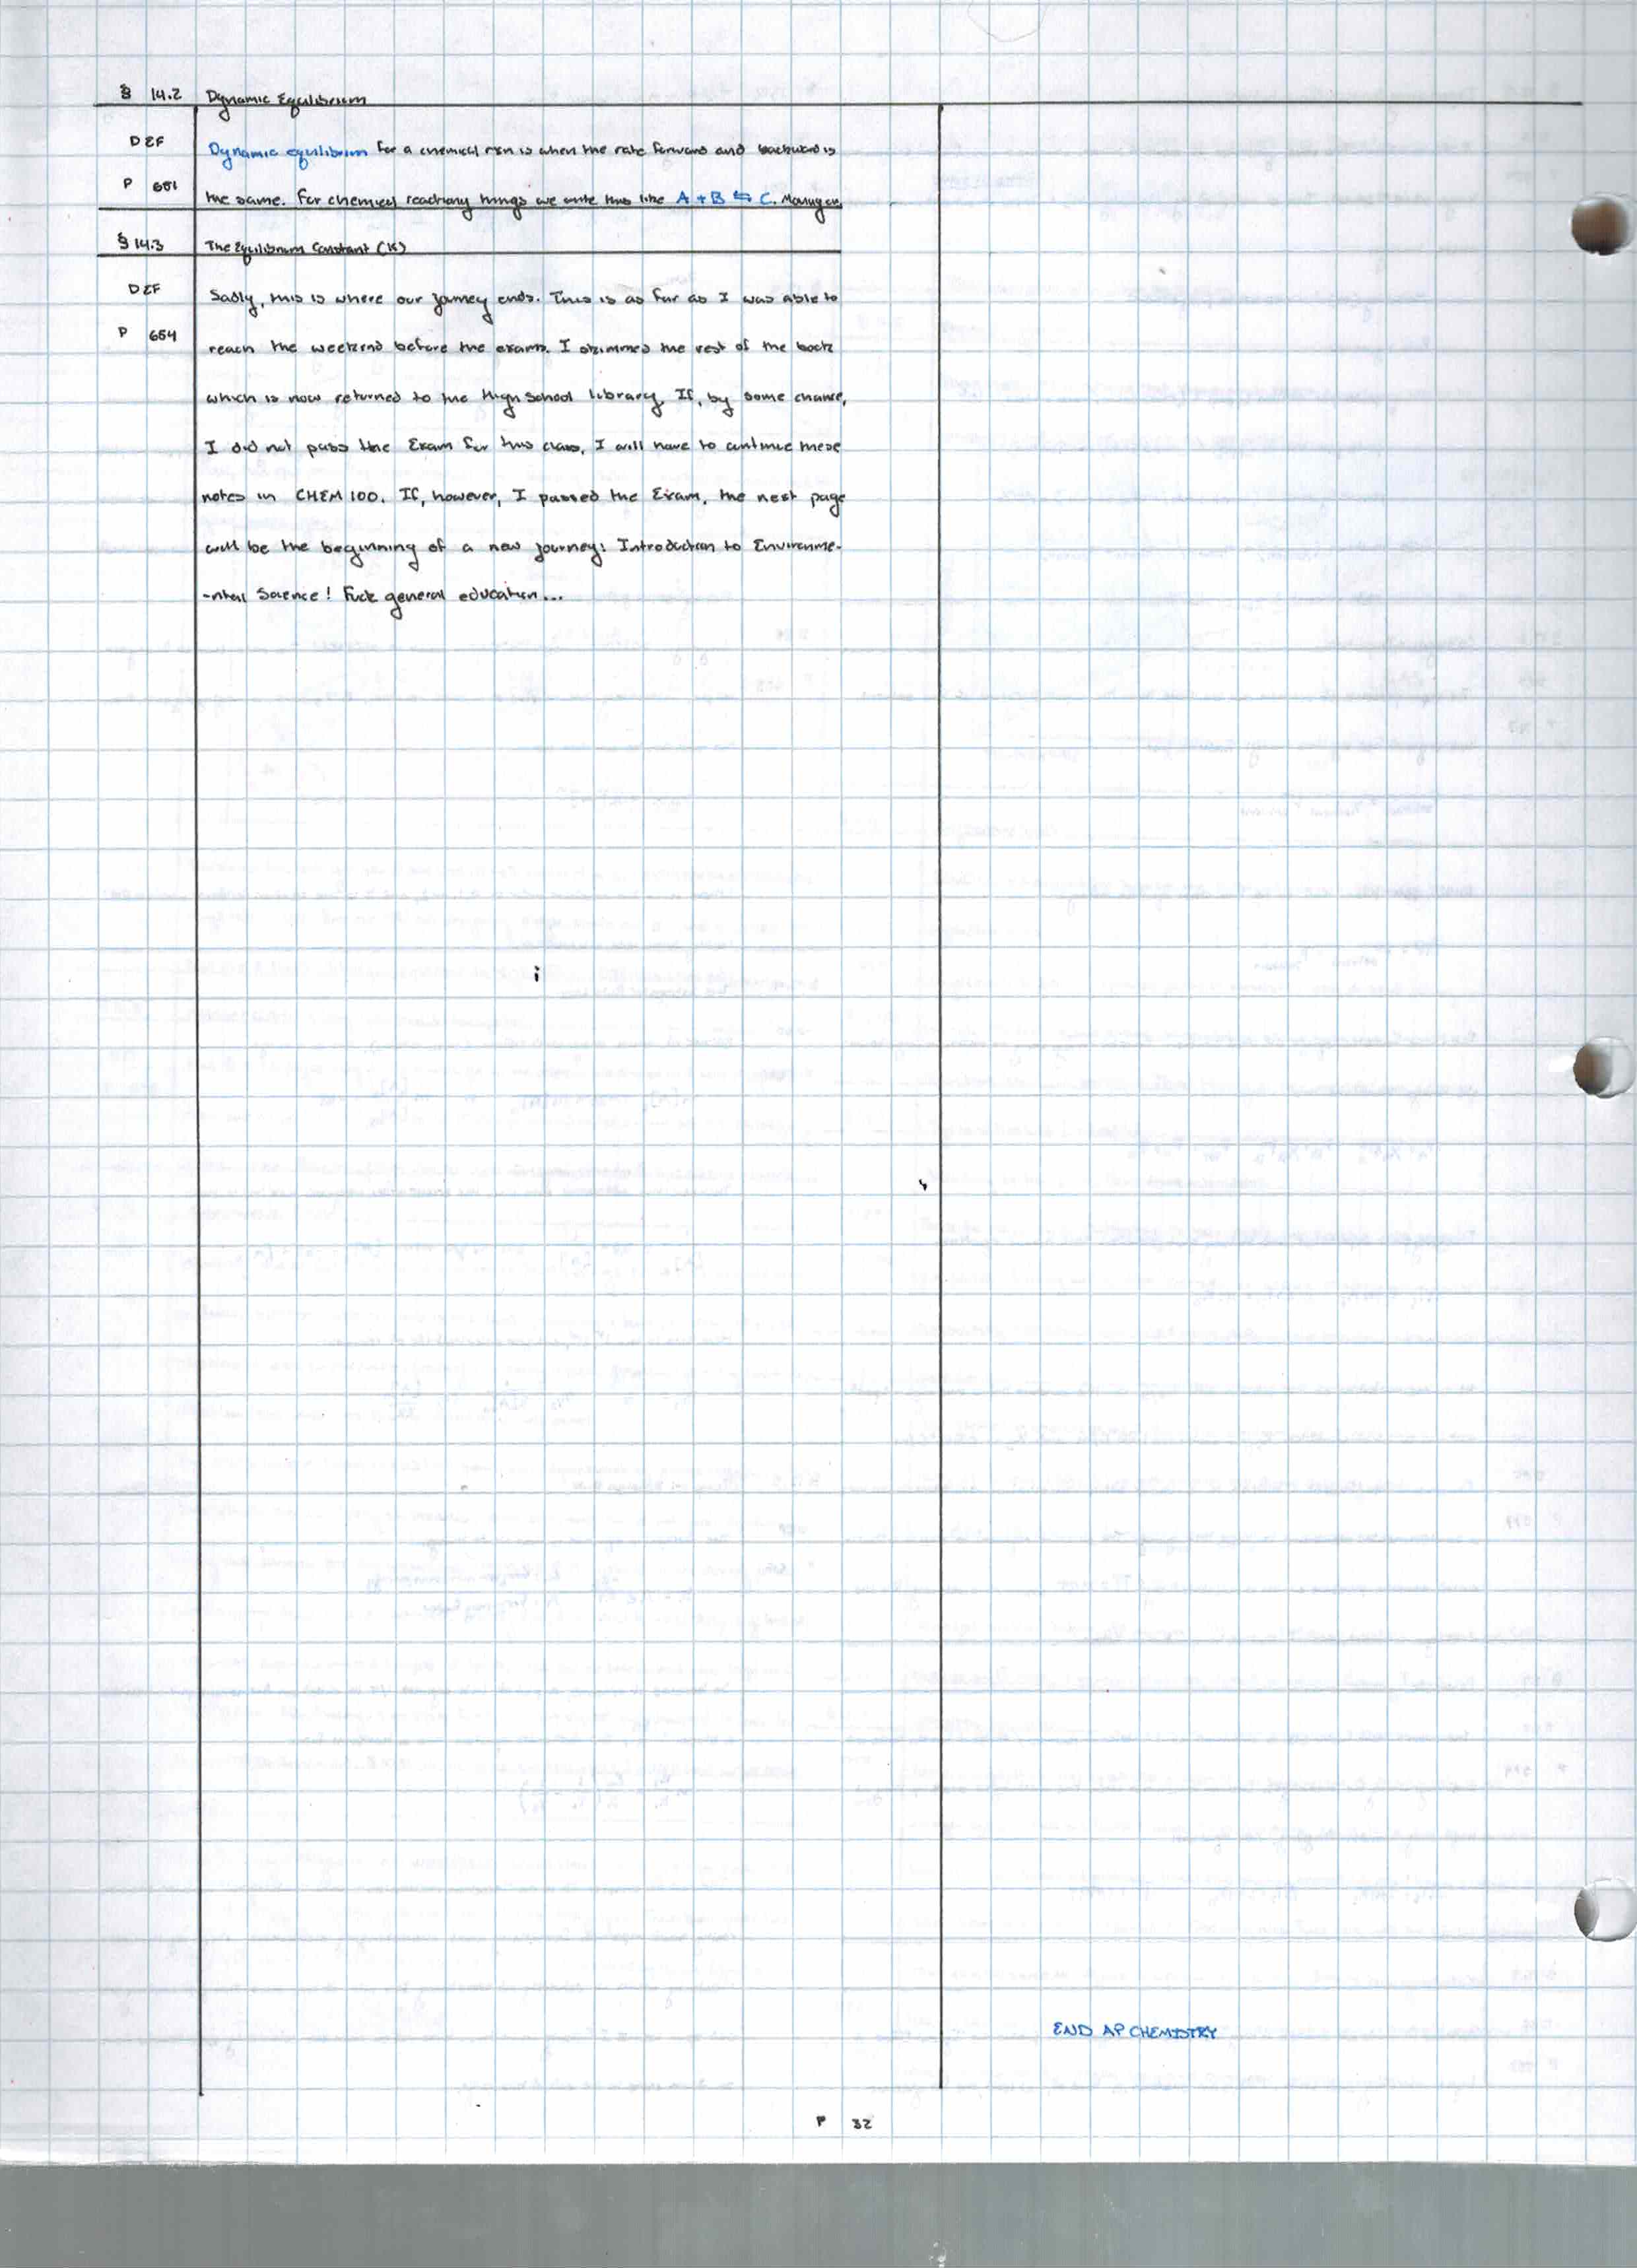 § 14.2 Dynamic Equilibrium
DEF Dynamic equilibrium for a chemical rxn is when the rate forward and backward is
P 651 the same. For chemical things we write this like A + B ⇆ C. Moving on
§ 14.3 The Equilibrium Constant (K)
DEF Sadly, this is where our journey ends. This is as far as I was able to
P 654 reach the weekend before the exams. I skimmed the rest of the book
which is now returned to the High School library. If, by some chance,
I did not pass the Exam for this class, I will have to continue these
notes in CHEM 100. If, however, I passed the Exam, the next page
will be the beginning of a new journey: Introduction to Environme-
-ntal Science! Fuck general education...
END AP CHEMISTRY
P 32